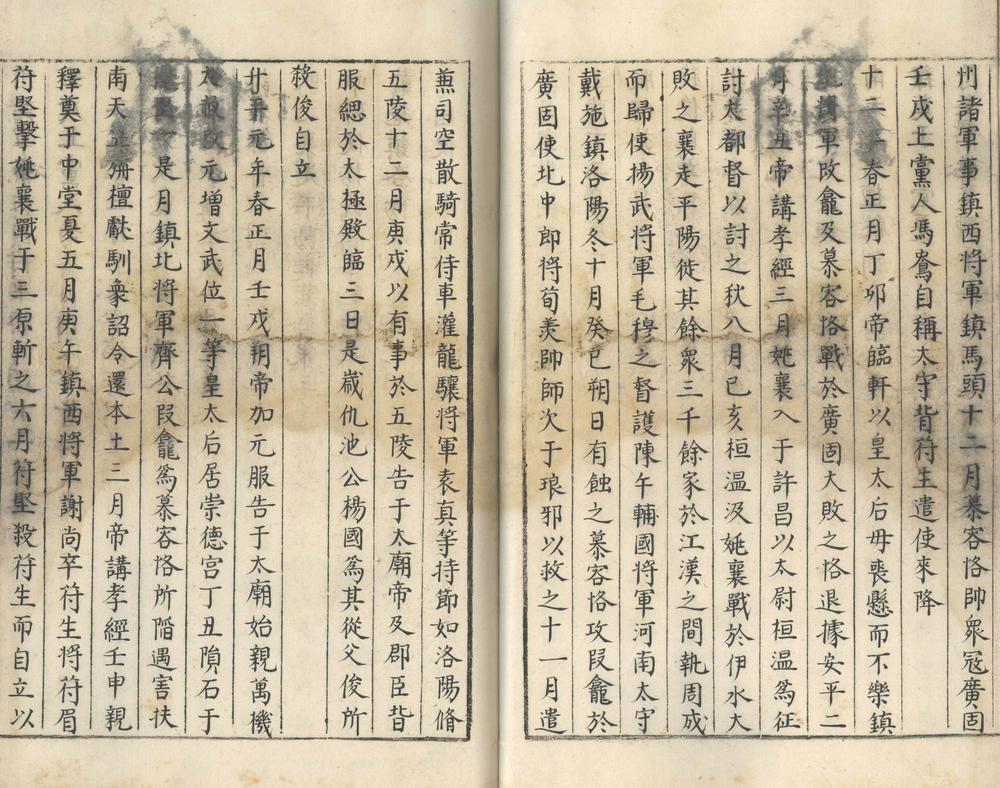 州諸軍事鎮西將軍鎮馬頭十二月慕容恪帥眾冦廣固
壬戌上黨人馮鴦自稱太守背苻生遣使來降
十二年春正月丁卯帝臨軒以皇太后毋喪懸而不樂鎮
將軍段龕及慕容恪戰於廣固大敗之恪退據安平二
月辛丑帝講孝經三月姚襄入于許昌以太尉桓温爲征
討大都督以討之秋八月已亥桓温及姚襄戰於伊水大
敗之襄走平陽徙其餘眾三千餘家於江漢之間執周成
而歸使揚武將軍毛穆之督護陳午輔國將軍河南太守
戴施鎮洛陽冬十月癸巳朔日有蝕之慕容恪攻段龕於
廣固使北中郎將荀羨帥師次于琅邪以救之十一月遣
兼司空散騎常侍車灌龍驤將軍袁真等持節如洛陽脩
五陵十二月庚戌以有事於五陵告于太廟帝及郡臣皆
服緦於太極殿臨三日是歲仇池公楊國爲其從父俊所
殺俊自立
升平元年春正月壬戌朔帝加元服告于太廟始親萬機
大赦改元增文武位一等皇太后居崇德宫丁丑隕石于
是月鎮北將軍齊公段龕爲慕容恪所陷遇害扶
南天竺旃檀獻馴象詔令還本土三月帝講孝經壬申親
釋奠于中堂夏五月庚午鎮西將軍謝尚卒苻生將苻眉
苻堅擊姚襄戰于三原斬之六月苻堅殺苻生而自立以